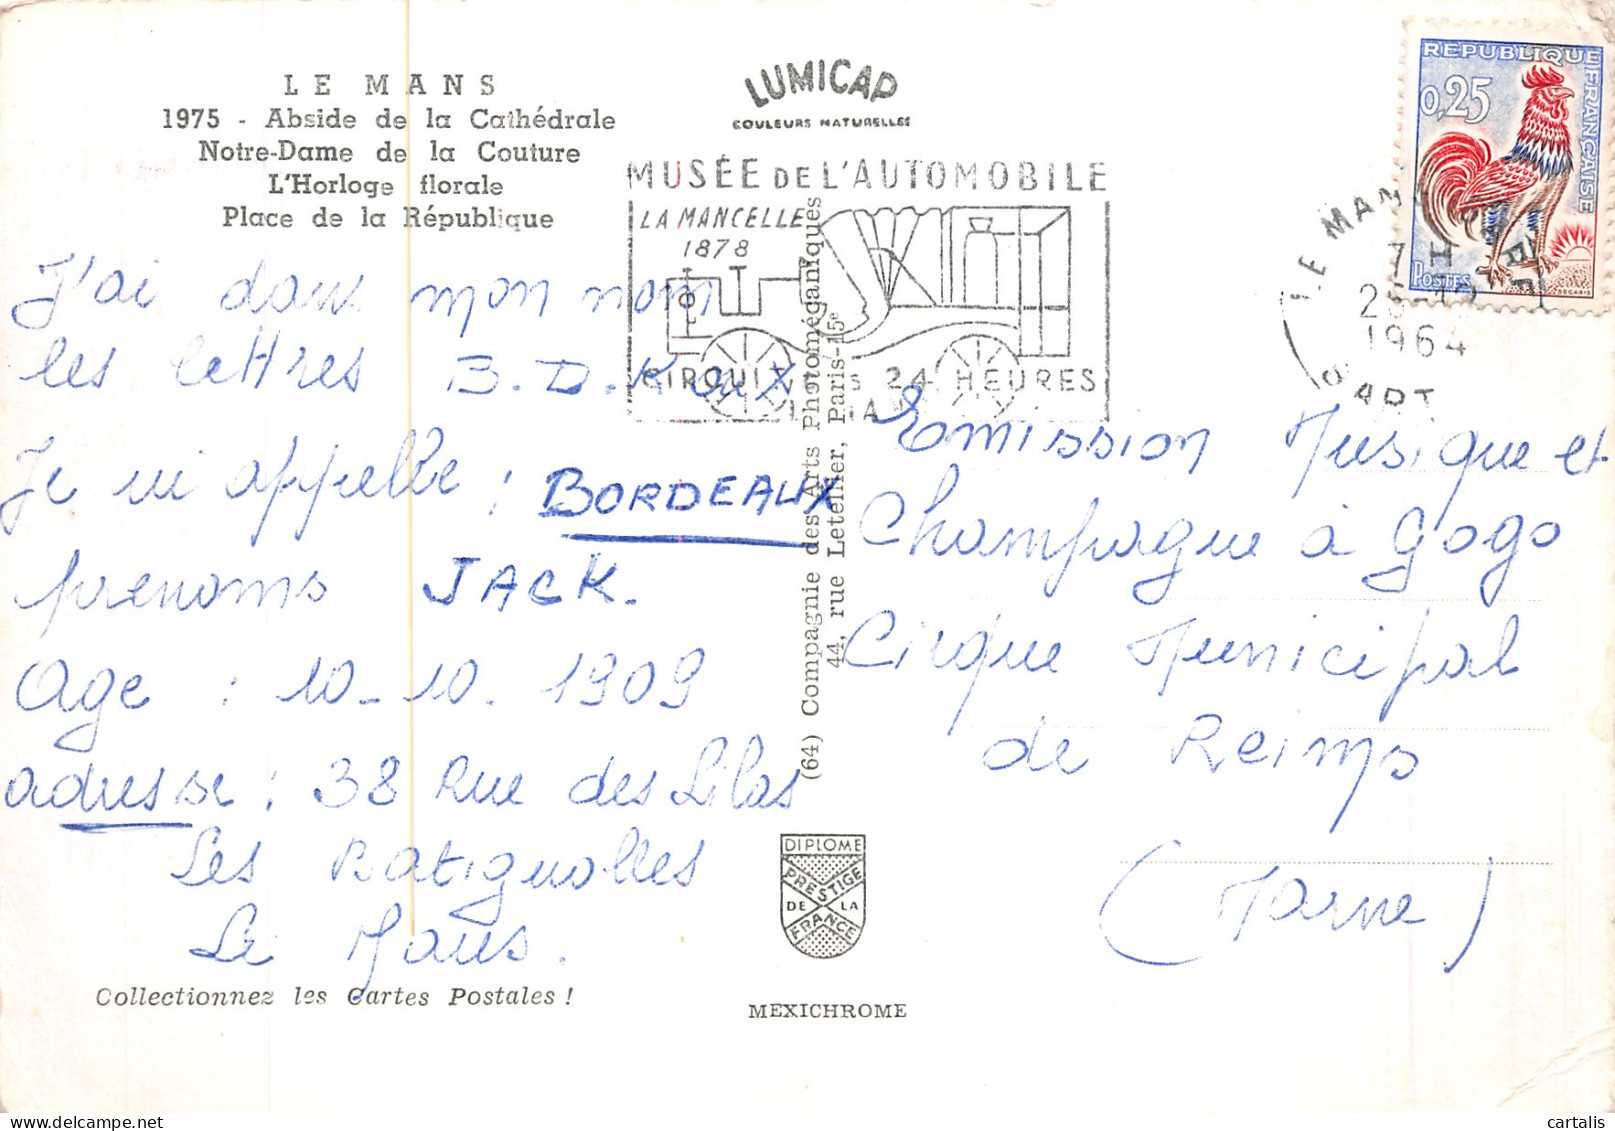 LE MANS
1975 - Abside de la Cathédrale
Notre-Dame de la Couture
L'Horloge florale
Place de la République
LUMICAP
COULEURS NATURELLES
MUSÉE DE L'AUTOMOBILE
LA MANCELLE
1878
CIRCUIT 24 HEURES
REPUBLIQUE FRANÇAISE
0,25
POSTES
DECARIS
LE MANS
7 H
1964
SARTHE
J'ai dans mon nom
les lettres B.D.K et X
Je m'appelle : BORDEAUX
prenoms JACK.
Age : 10-10. 1909
adresse : 38 Rue des Lilas
Les Batignolles
Le Mans.
Emission Musique et
Champagne à gogo
Cirque Municipal
de Reims
(Marne)
(64) Compagnie des Arts Photomécaniques
44, rue Letellier, Paris-15e
DIPLOME
PRESTIGE
DE LA
FRANCE
Collectionnez les Cartes Postales !
MEXICHROME
cartalis
www.delcampe.net